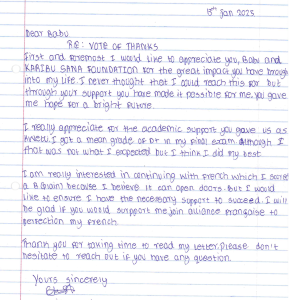 15th Jan 2023
Dear Babu
RE: VOTE OF THANKS
First and foremost I would like to appreciate you, Babu and
KARIBU SANA FOUNDATION for the great impact you have brough
into my life. I never thought that I could reach this far but
through your support you have made it possible for me. you gave
me hope for a bright future.
I really appreciate for the academic support you gave us as
well. I got a mean grade of D+ in my final exam although I
that was not what I expected but I think I did my best
I am really interested in continuing with French which I scored
a B(plain) because I believe it can open doors. But I would
like to ensure I have the necessary support to succeed. I will
be glad if you would support me join alliance française to
perfection my French
Thank you for saving time to read my letter. Please don't
hesitate to reach out if you have any question.
Yours sincerely